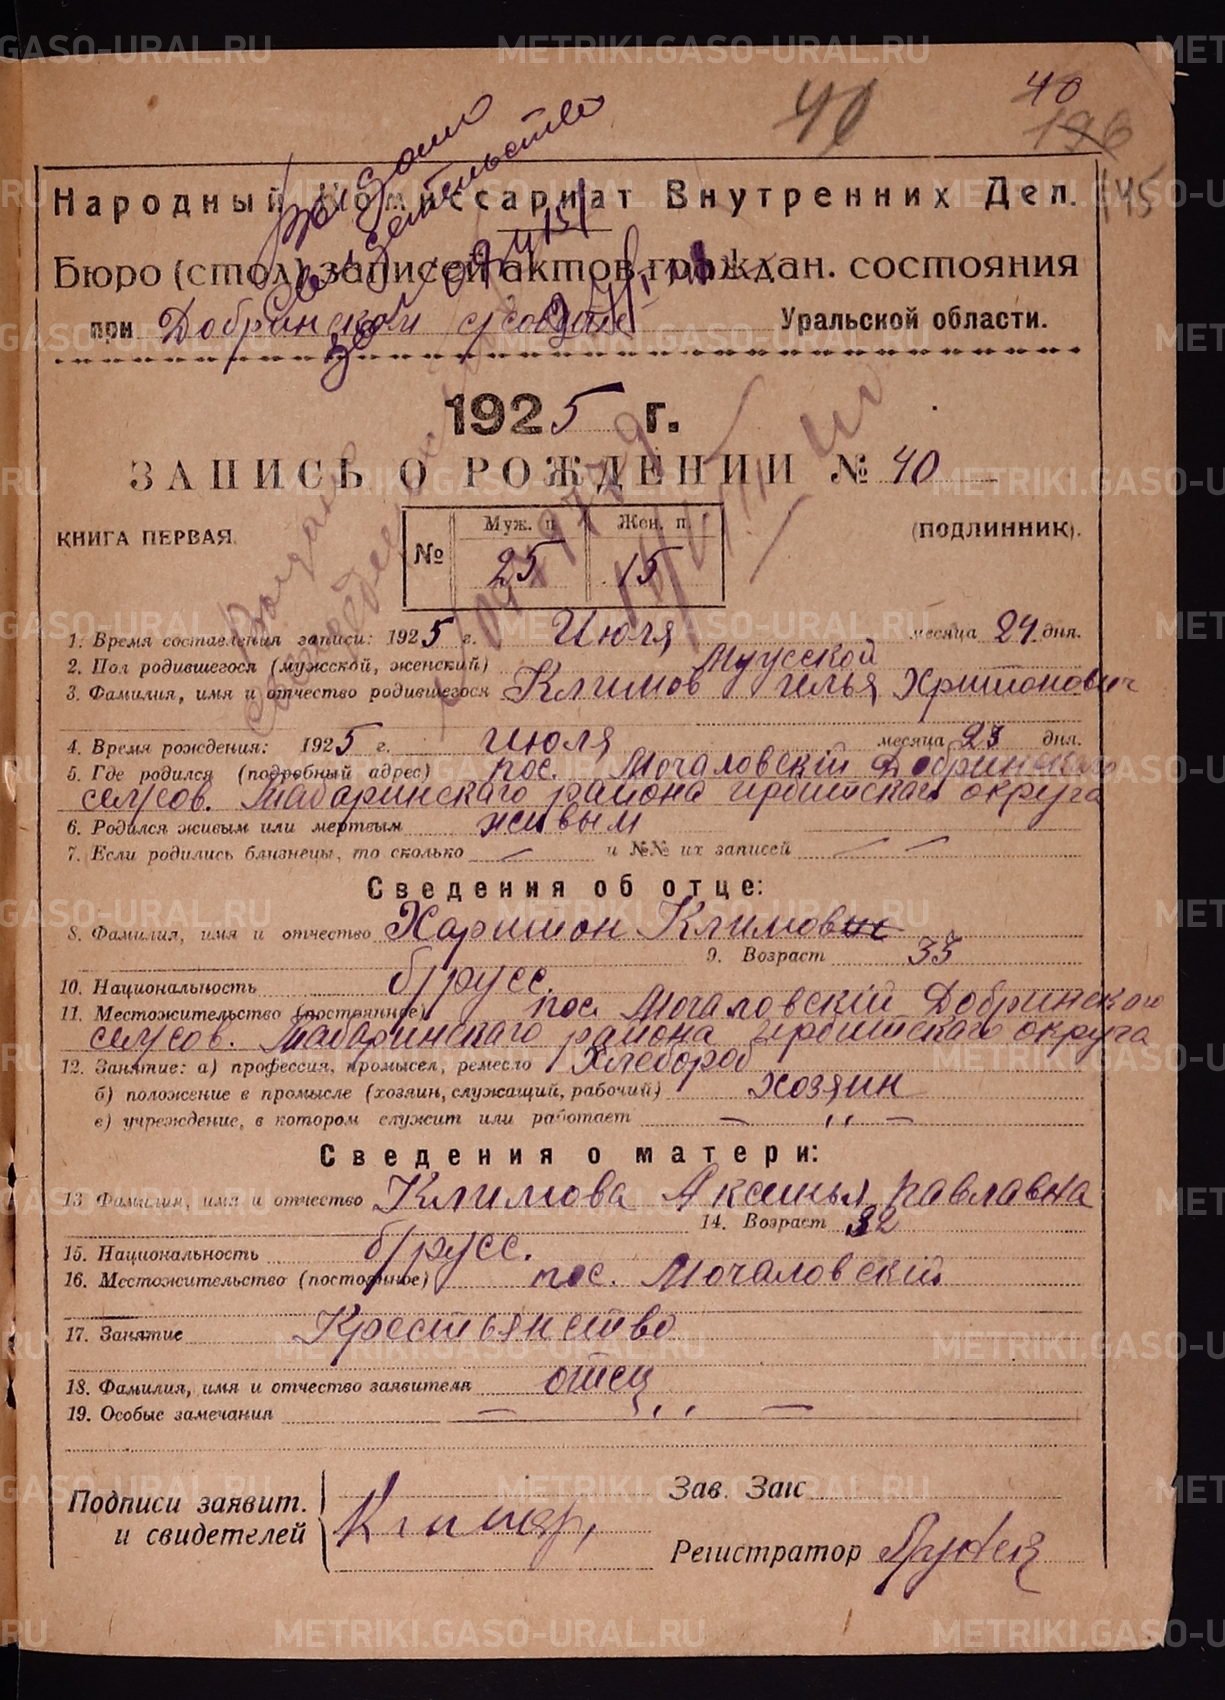 40
41
196
145
Народный Комиссариат Внутренних Дел.
Бюро (стол) записей актов граждан. состояния
при Добринском с/совете Уральской области.
Выдано
свидетельство
1925 г.
ЗАПИСЬ О РОЖДЕНИИ № 40
КНИГА ПЕРВАЯ. (ПОДЛИННИК).
№ Муж. п. Жен. п.
25 15
1. Время составления записи: 1925 г. Июля месяца 24 дня.
2. Пол родившегося (мужской, женский) Мужской
3. Фамилия, имя и отчество родившегося Климов илья Хритонович
4. Время рождения: 1925 г. июля месяца 23 дня.
5. Где родился (подробный адрес) пос. Мочаловскій Добринского
сельсов. Табаринскаго района ирбитскаго округа
6. Родился живым или мертвым живым
7. Если родились близнецы, то сколько — и №№ их записей — —
Сведения об отце:
8. Фамилия, имя и отчество Харитон Климов
9. Возраст 33
10. Национальность б/русс.
11. Местожительство (постоянное) пос. Мочаловскій Добринского
сельсов. Табаринскаго района ирбитскаго округа
12. Занятие: а) профессия, промысел, ремесло Хлебороб
б) положение в промысле (хозяин, служащий, рабочий) хозяин
в) учреждение, в котором служит или работает — ,, —
Сведения о матери:
13 Фамилия, имя и отчество Климова Аксинья павлавна
14. Возраст 32
15. Национальность б/русс.
16. Местожительство (постоянное) пос. Мочаловскій
17. Занятие Крестьянство
18. Фамилия, имя и отчество заявителя отец
19. Особые замечания — ,, —
Подписи заявит. Зав. Загс
и свидетелей
Регистратор
METRIKI.GASO-URAL.RU